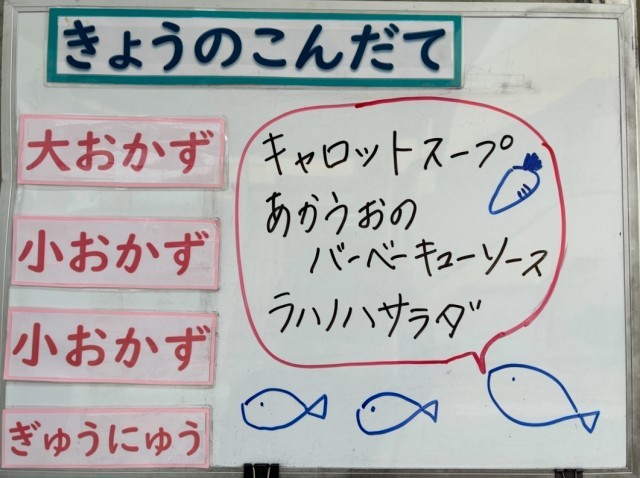 きょうのこんだて
大おかず
小おかず
小おかず
ぎゅうにゅう
キャロットスープ
あかうおの
バーベーキューソース
ラハノハサラダ